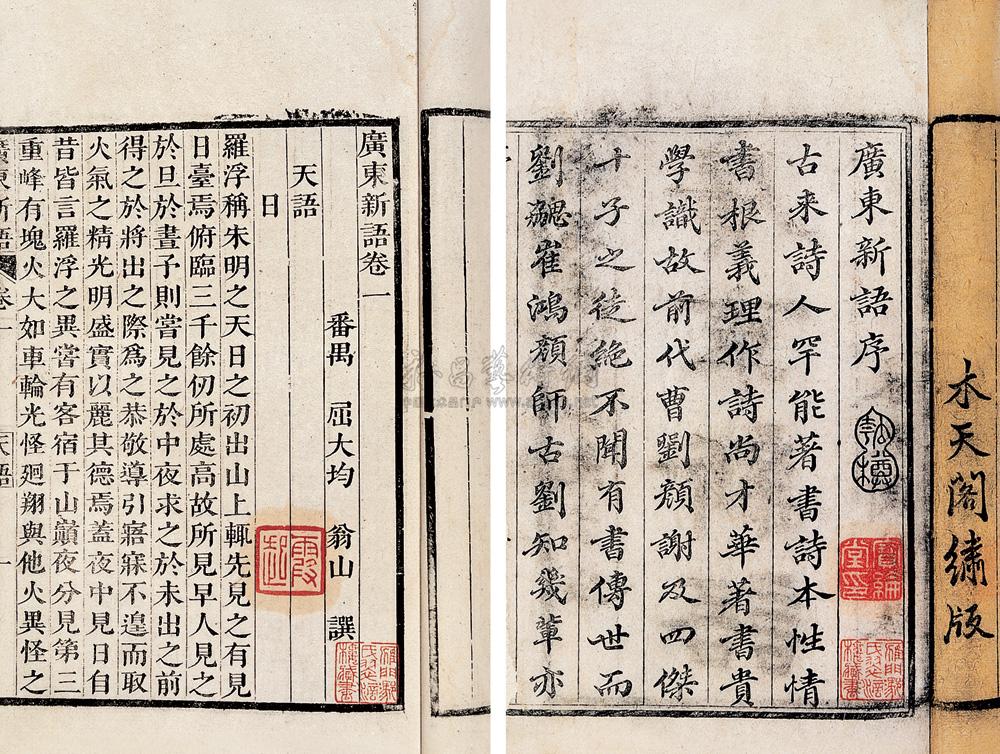 木天閣繡版
廣東新語序
古來詩人罕能著書詩本性情
書根義理作詩尚才華著書貴
學識故前代曹劉顏謝及四傑
十子之徒絶不聞有書傳世而
劉勰崔鴻顏師古劉知幾輩亦
廣東新語卷一
番禺 屈大均 翁山 譔
天語
日
羅浮稱朱明之天日之初出山上輒先見之有見
日臺焉俯臨三千餘仞所處高故所見早人見之
於旦於晝子則嘗見之於中夜求之於未出之前
得之於將出之際爲之恭敬導引寤寐不遑而取
火氣之精光明盛實以麗其德焉蓋夜中見日自
昔皆言羅浮之異嘗有客宿于山巔夜分見第三
重峰有塊火大如車輪光怪廻翔與他火異怪之
廣東新語 卷一 天語 一